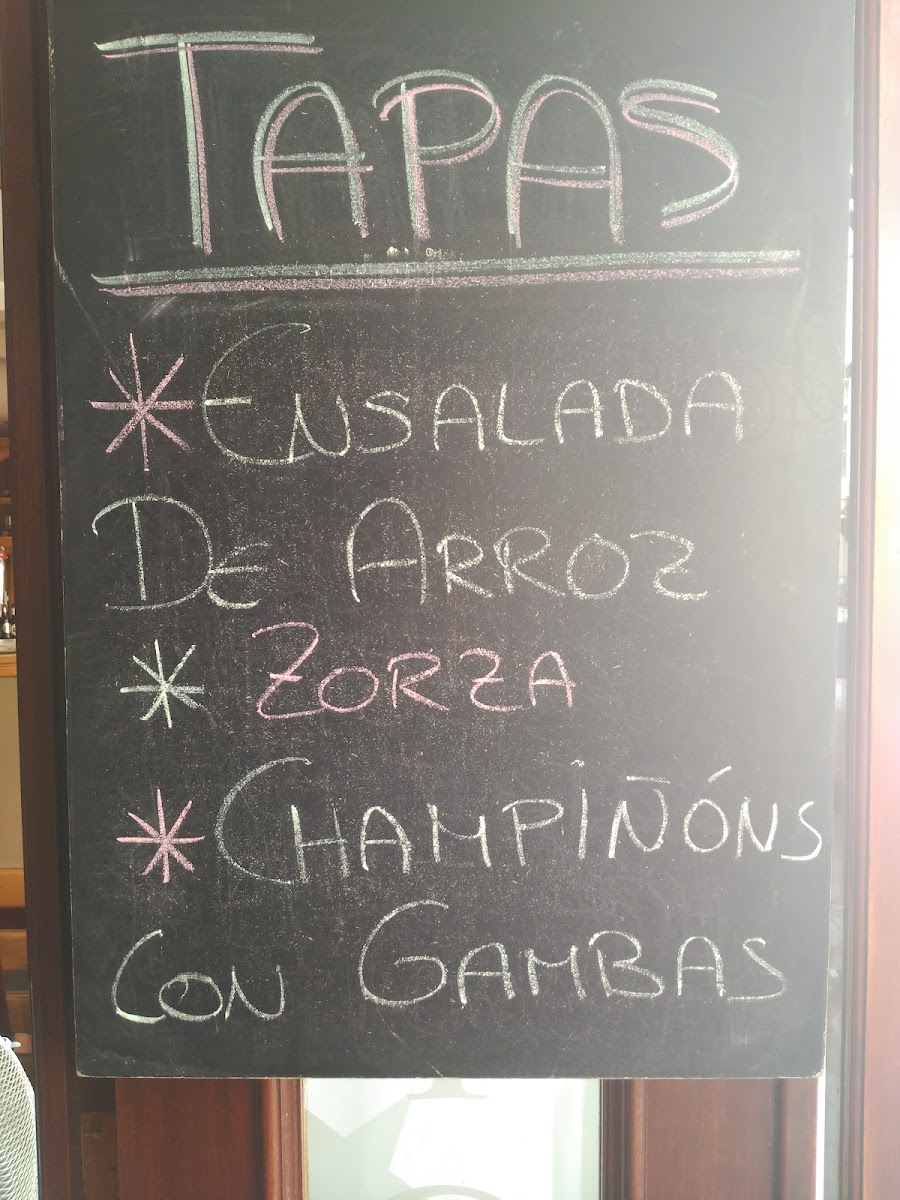 TAPAS
* ENSALADA
DE ARROZ
* ZORZA
* CHAMPIÑÓNS
CON GAMBAS